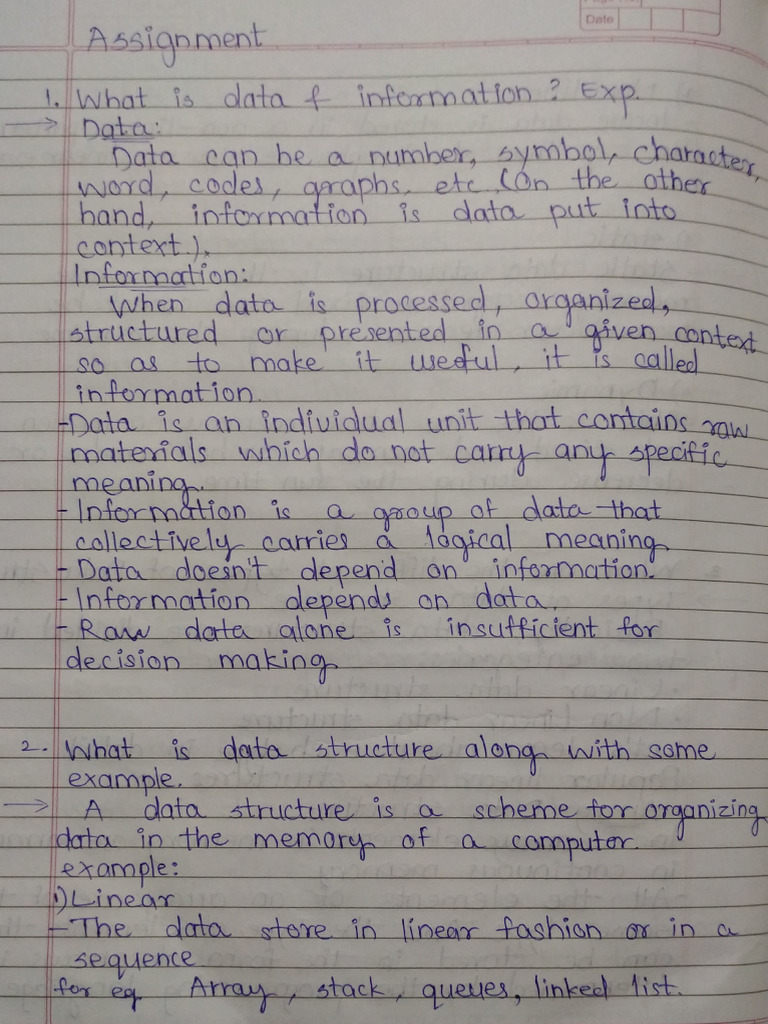 Date
Assignment
1. What is data & information? Exp.
→ Data:
Data can be a number, symbol, character,
word, codes, graphs. etc (On the other
hand, information is data put into
context.).
Information:
When data is processed, organized,
structured or presented in a given context
so as to make it useful, it is called
information.
-Data is an individual unit that contains raw
materials which do not carry any specific
meaning.
- Information is a group of data that
collectively carries a logical meaning
- Data doesn't depend on information.
- Information depends on data.
- Raw data alone is insufficient for
decision making
2. What is data structure along with some
example.
→ A data structure is a scheme for organizing
data in the memory of a computer.
example:
1) Linear
-The data store in linear fashion or in a
sequence
for eg Array, stack, queues, linked list.